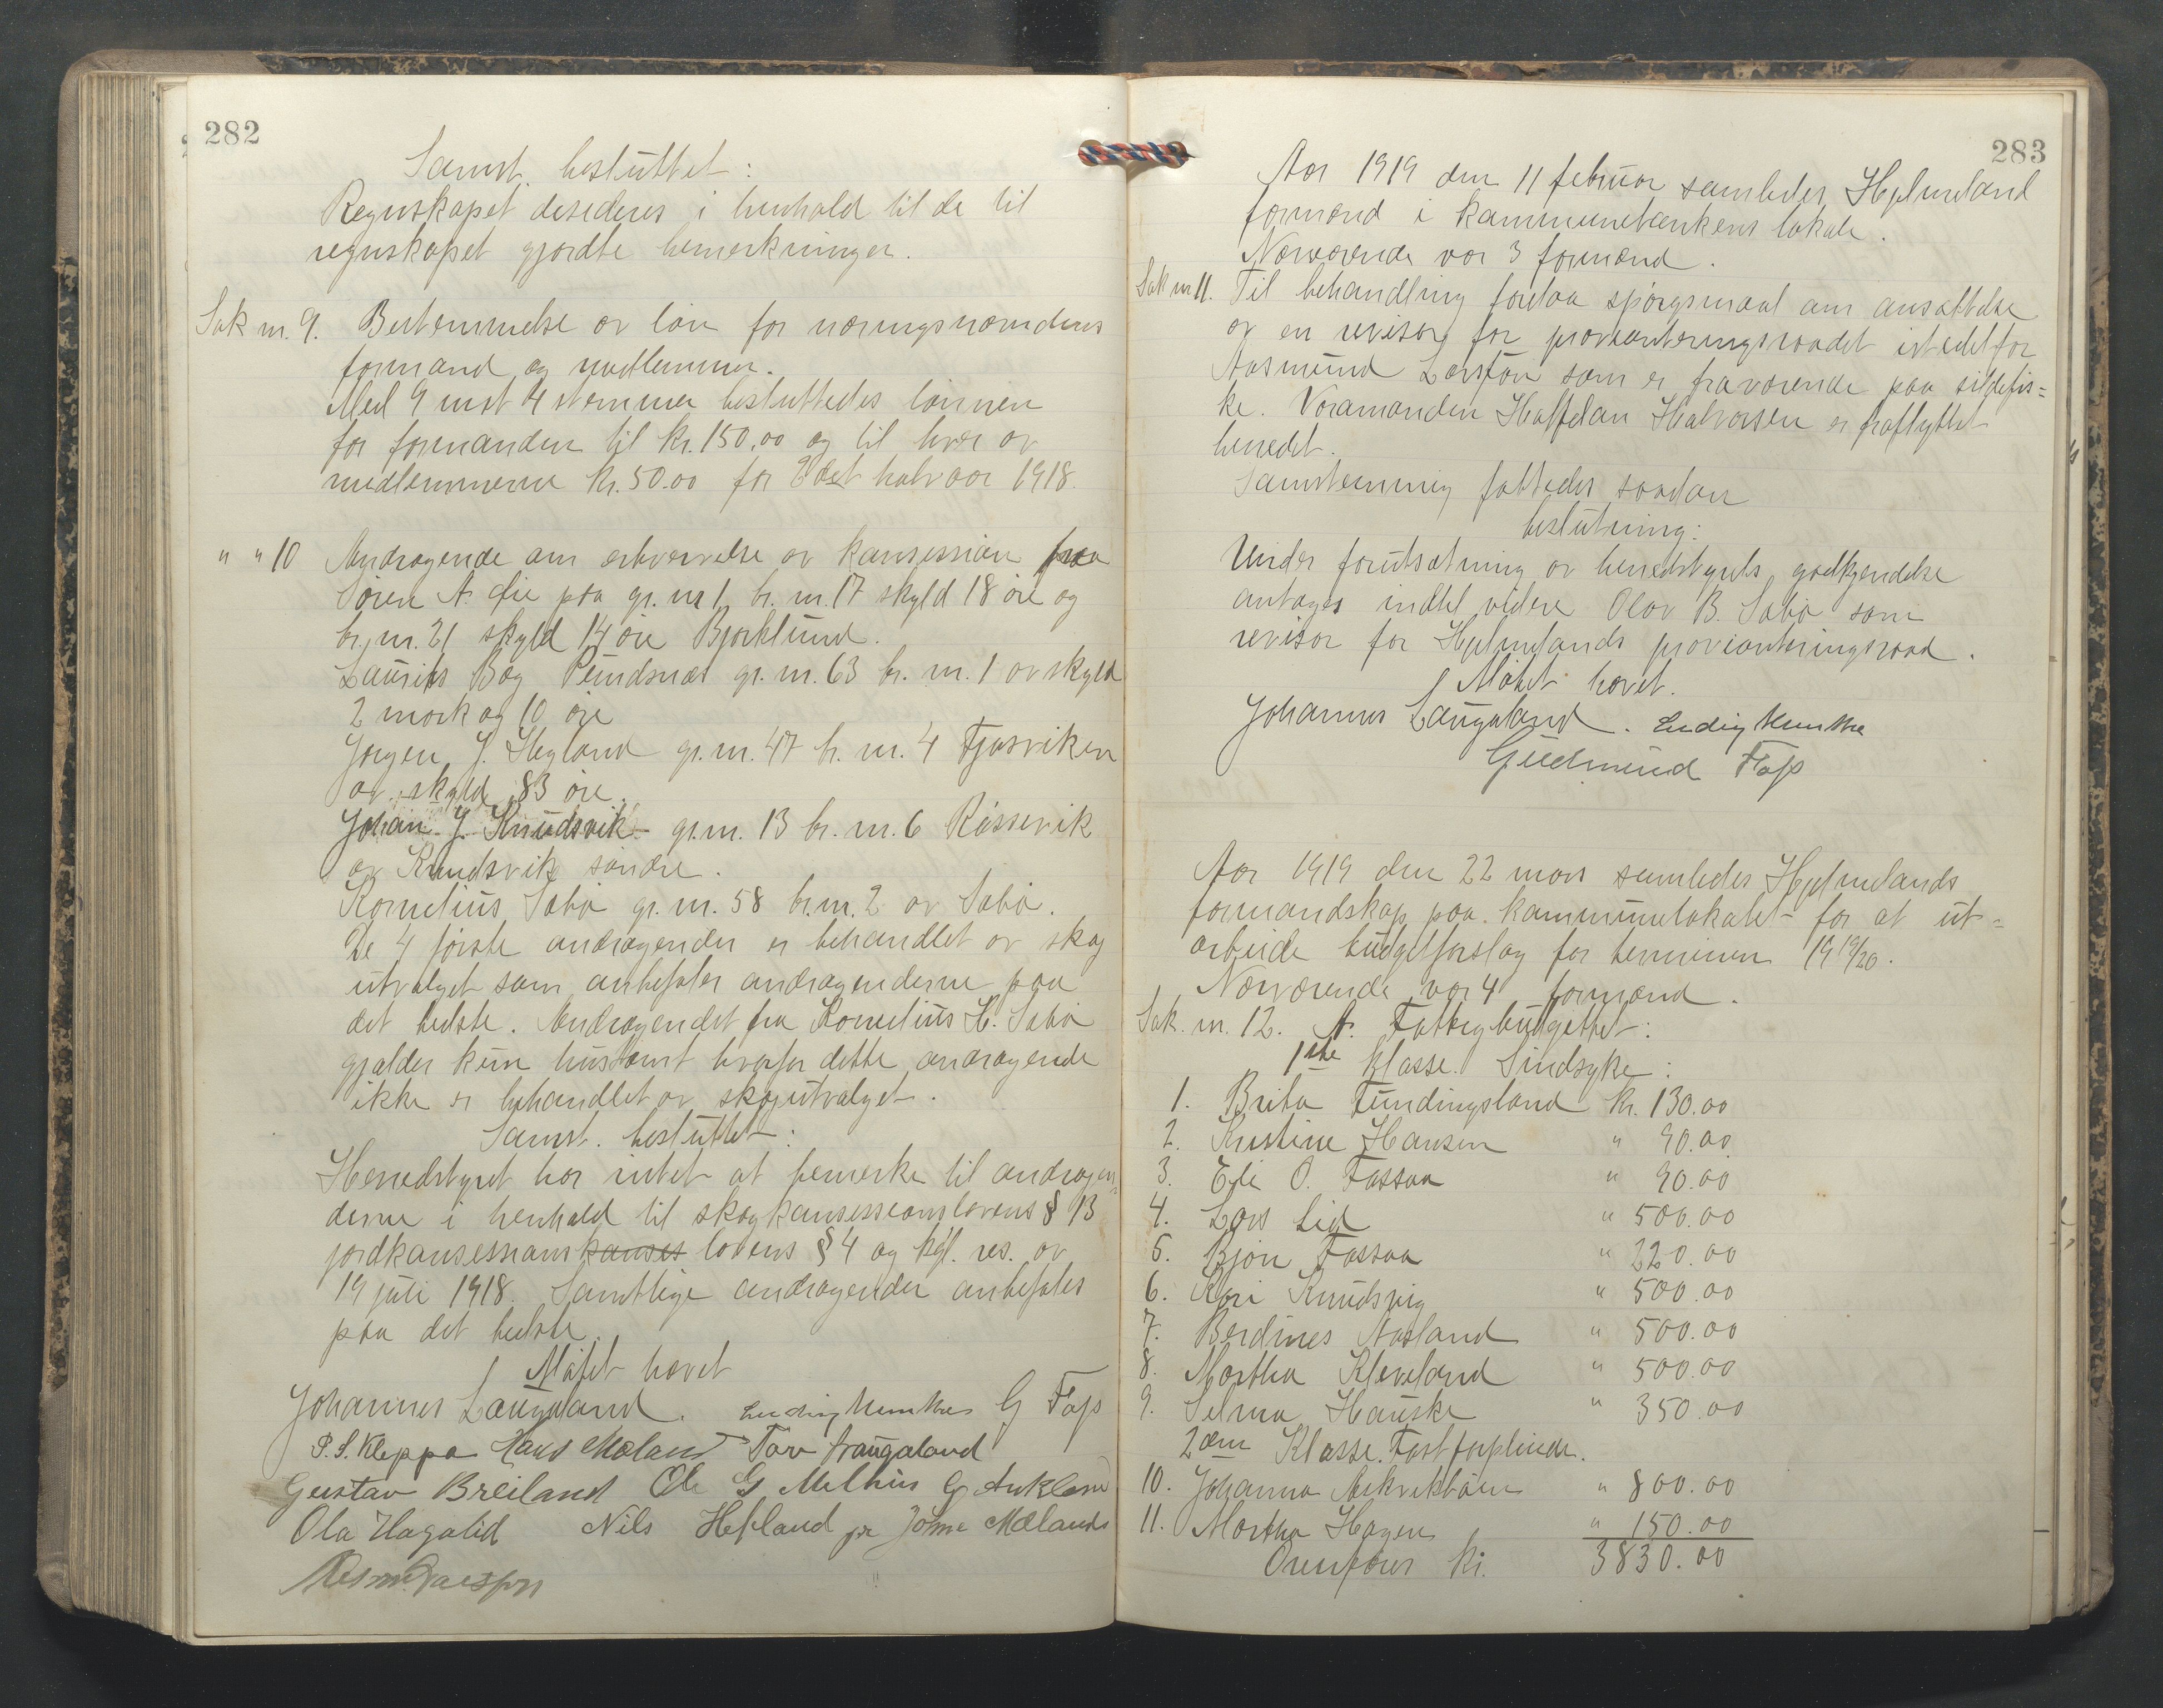 282
Samst. besluttet:
Regnskapet desideres i henhold til de til
regnskapet gjordte bemerkninger.
Sak nr. 9. Bestemmelse av løn for næringsnæmdens
formand og medlemmer.
Med 9 mot 4 stemmer besluttedes lønnen
for formanden til kr. 150,00 og til hver av
medlemmerne kr. 50.00 for 2det halvaar 1918.
" " 10 Andragende om erhvervelse av konsession fra
Søren A. Øie paa gr. nr 1 br. nr. 17 skyld 18 øre og
br. nr. 21 skyld 14 øre Bjørklund.
Laurits Bøg Pundsnes gr. nr. 63 br. nr. 1 av skyld
2 mark og 10 øre
Jørgen J. Hegland gr. nr. 47 br. nr. 4 Fjøsviken
av skyld 83 øre.
Johan J. Knudsvik gr. nr. 13 br. nr. 6 Røssevik
av Knudsvik søndre.
Kornelius Sabø gr. nr. 58 br. nr. 2 av Sabø.
De 4 første andragender er behandlet av skog
utvalget som anbefaler andragenderne paa
det bedste. Andragendet fra Kornelius H. Sabø
gjælder kun hustomt hvorfor dette andragende
ikke er behandlet av skogutvalget.
Samst. besluttet:
Herredstyret har intet at bemerke til andragen=
derne i henhold til skogkonsessionslovens § 13
jordkonsessions konses lovens § 4 og kgl. res. av
19 juli 1918. Samtlige andragender anbefales
paa det bedste.
Møtet hævet
Johannes Laugaland. Endre G Fass
P. S. Kleppa Hans Mæland Tore Laugaland
Gustav Breiland Ole G Melhus G Aukland
Ola Hagalid Nils Hetland pr Johne Mælands
283
Aar 1919 den 11 februar samledes Hjelmeland
formænd i kommunebankens lokale.
Nærværende var 3 formænd.
Sak nr 11. Til behandling foretaa spørgsmaal om ansættelse
av en revisor for provianteringsraadet istedetfor
Aasmund Larsson som er fraværende paa sildefis=
ke. Varamanden Haffdan Halvorsen er fraflyttet
herredet.
Samstemmig fattedes saadan
beslutning:
Under forutsætning av herredstyrets godkjendelse
antages indtil videre Olav B. Sabø som
revisor for Hjelmelands provianteringsraad.
Møtet hævet.
Johannes Laugaland. Endre
Gudmund Fass
Aar 1919 den 22 mars samledes Hjelmelands
formandskap paa kommunelokalet for at ut=
arbeide budgetforslag for terminen 1919/20.
Nærværende var 4 formænd.
Sak. nr. 12. A. Fattigbudgettet:
1ste Klasse. Sindsyke:
1. Brita Fundingsland kr. 130.00
2. Kristine Hansen " 90.00
3. Eli O. Fossaa " 90.00
4. Lars Lid " 500.00
5. Bjørn Fossaa " 220.00
6. Kari Knudsvig " 500.00
7. Berdines Aasland " 500.00
8. Martha Kleveland " 500.00
9. Selma Hauske " 350.00
2den Klasse. Fast forpleiede.
10. Johanna " 800.00
11. Martha Hagen " 150.00
Overføres kr. 3830.00